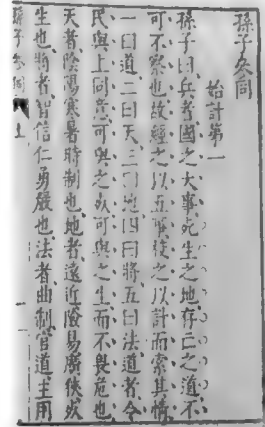 孫子參同
始計第一
孫子曰兵者國之大事死生之地存亡之道不
可不察也故經之以五事校之以計而索其情
一曰道二曰天三曰地四曰將五曰法道者令
民與上同意可與之死可與之生而不畏危也
天者陰陽寒暑時制也地者遠近險易廣狹死
生也將者智信仁勇嚴也法者曲制官道主用
孫子參同